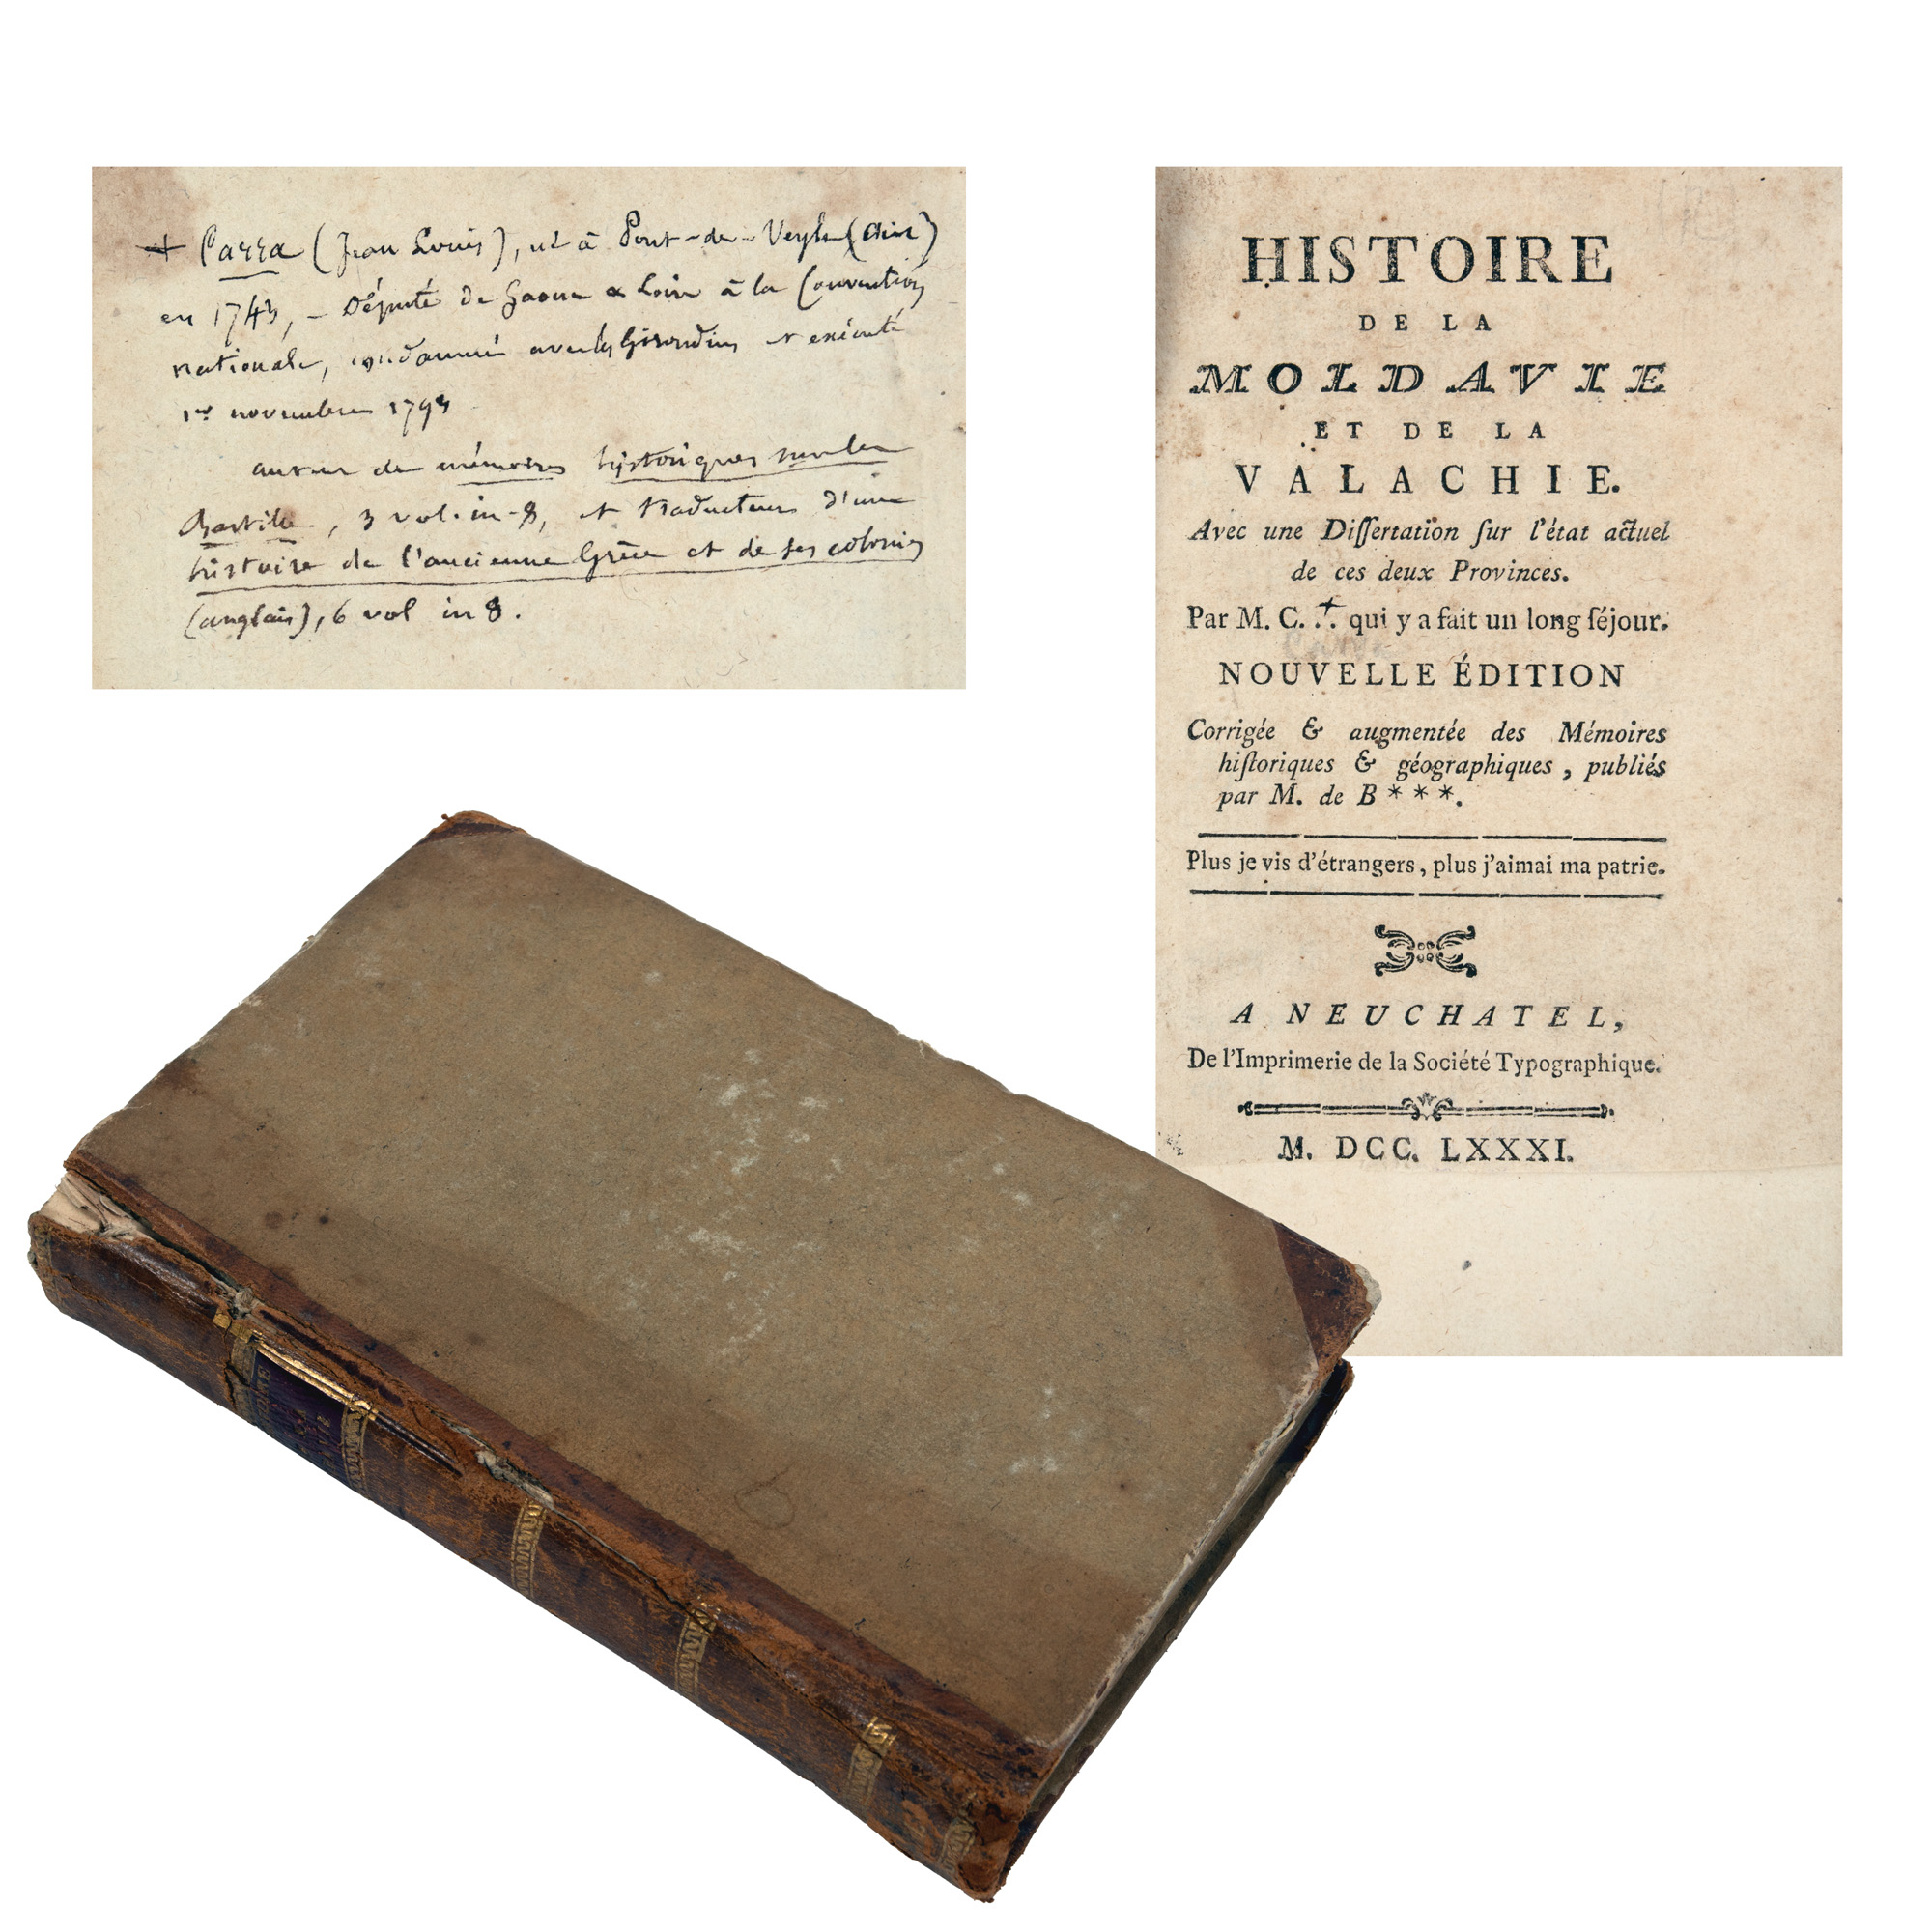 + Carra (Jean Louis), né à Pont-de-Veyle (Ain)
en 1743, – Député de Saone & Loire à la Convention
nationale, condamné avec les Girondins et exécuté
1er novembre 1793
auteur de mémoires historiques sur la
Bastille, 3 vol. in-8, et traducteur d'une
histoire de l'ancienne Grèce et de ses colonies
(anglais), 6 vol in 8.
HISTOIRE
DE LA
MOLDAVIE
ET DE LA
VALACHIE.
Avec une Dissertation sur l'état actuel
de ces deux Provinces.
Par M. C. +. qui y a fait un long séjour.
Carra
NOUVELLE ÉDITION
Corrigée & augmentée des Mémoires
historiques & géographiques, publiés
par M. de B***.
Plus je vis d'étrangers, plus j'aimai ma patrie.
A NEUCHATEL,
De l'Imprimerie de la Société Typographique.
M. DCC. LXXXI.